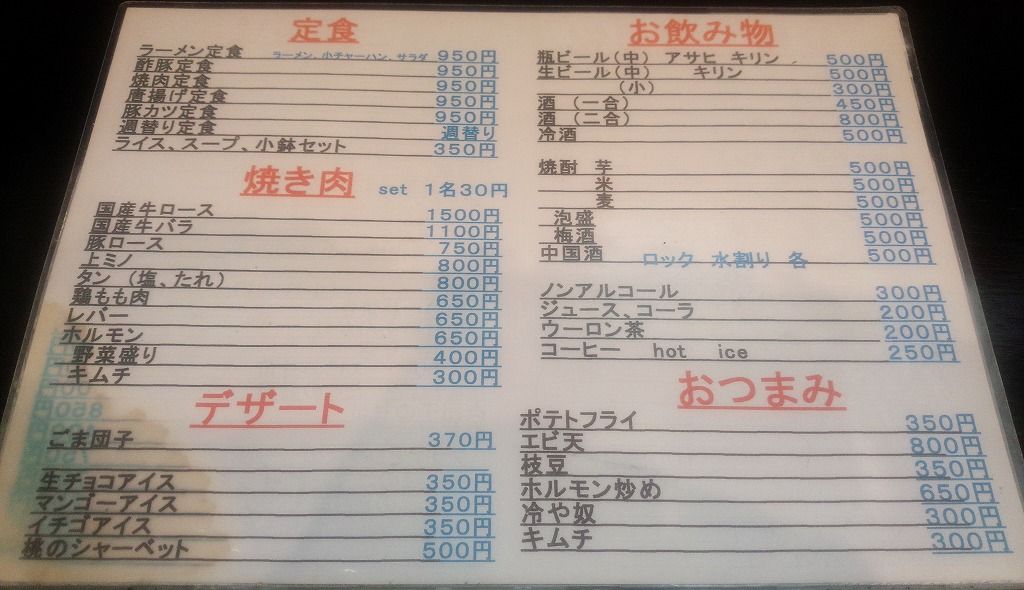 定食
ラーメン定食 ラーメン、小チャーハン、サラダ 950円
酢豚定食 950円
焼肉定食 950円
唐揚げ定食 950円
豚カツ定食 950円
週替り定食 週替り
ライス、スープ、小鉢セット 350円
焼き肉 set 1名30円
国産牛ロース 1500円
国産牛バラ 1100円
豚ロース 750円
上ミノ 800円
タン (塩、たれ) 800円
鶏もも肉 650円
レバー 650円
ホルモン 650円
野菜盛り 400円
キムチ 300円
デザート
ごま団子 370円
生チョコアイス 350円
マンゴーアイス 350円
イチゴアイス 350円
桃のシャーベット 500円
お飲み物
瓶ビール(中) アサヒ キリン 500円
生ビール(中) キリン 500円
(小) 300円
酒 (一合) 450円
酒 (二合) 800円
冷酒 500円
焼酎 芋 500円
米 500円
麦 500円
泡盛 500円
梅酒 500円
中国酒 500円
ロック 水割り 各
ノンアルコール 300円
ジュース、コーラ 200円
ウーロン茶 200円
コーヒー hot ice 250円
おつまみ
ポテトフライ 350円
エビ天 800円
枝豆 350円
ホルモン炒め 650円
冷や奴 300円
キムチ 300円